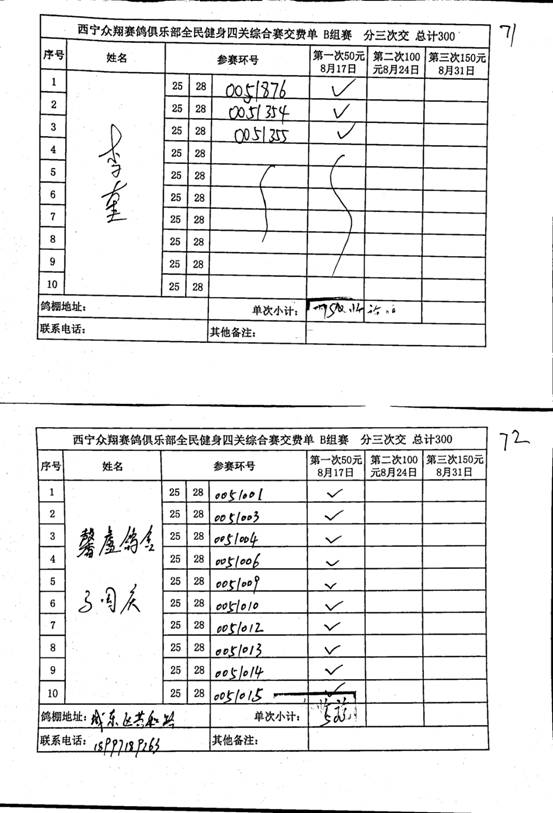 西宁众翔赛鸽俱乐部全民健身四关综合赛交费单 B组赛 分三次交 总计300
71
序号 姓名 参赛环号 第一次50元 8月17日 第二次100元8月24日 第三次150元 8月31日
1 25 28 0051876 ✓
2 25 28 0051354 ✓
3 25 28 0051355 ✓
4 25 28
5 25 28
6 25 28
7 25 28
8 25 28
9 25 28
10 25 28
李
鸽棚地址: 单次小计:
联系电话: 其他备注:
西宁众翔赛鸽俱乐部全民健身四关综合赛交费单 B组赛 分三次交 总计300
72
序号 姓名 参赛环号 第一次50元 8月17日 第二次100元8月24日 第三次150元 8月31日
1 25 28 0051001 ✓
2 25 28 0051003 ✓
3 25 28 0051004 ✓
4 25 28 0051006 ✓
5 25 28 0051009 ✓
6 25 28 0051010 ✓
7 25 28 0051012 ✓
8 25 28 0051013 ✓
9 25 28 0051014 ✓
10 25 28 0051015 ✓
馨庐鸽舍
国庆
鸽棚地址: 城东区共和路 单次小计:
联系电话: 其他备注: